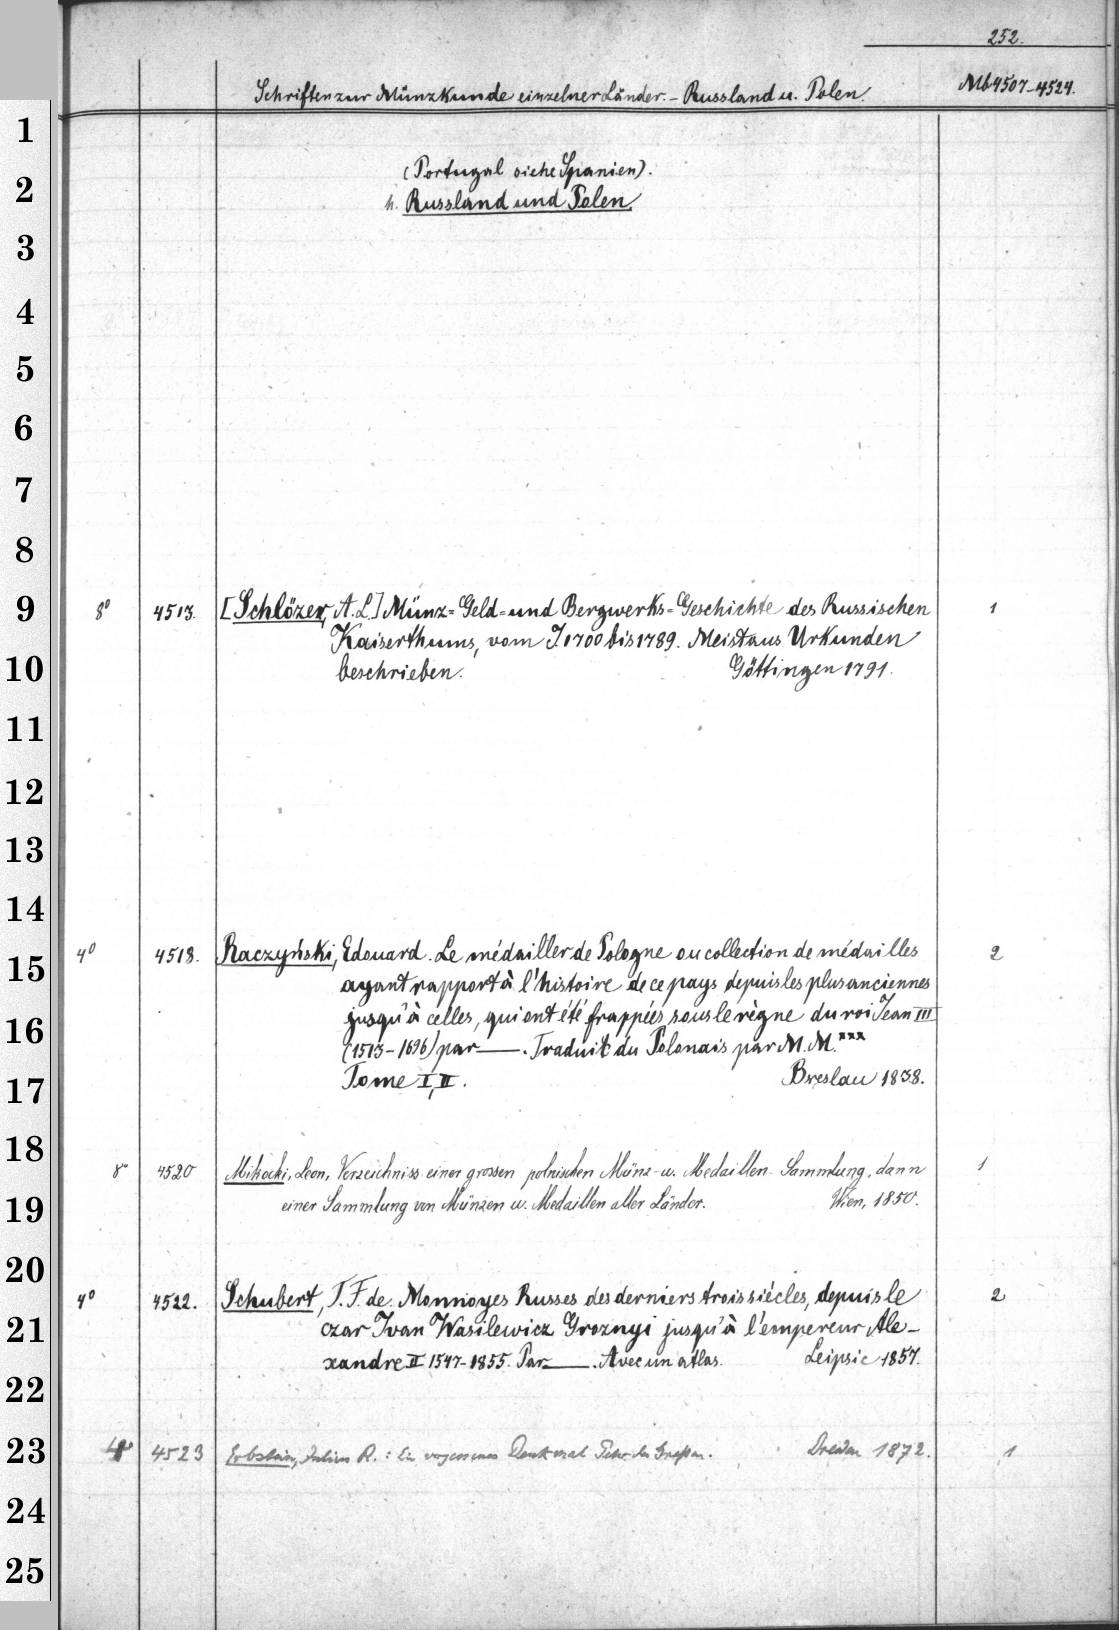 252.
Schriften zur Münzkunde einzelner Länder. - Russland u. Polen. Mb4507-4524.
(Portugal siehe Spanien).
h. Russland und Polen.
8° 4513. [Schlözer, A. L.] Münz= Geld= und Bergwerks= Geschichte des Russischen 1
Kaiserthums, vom J. 1700 bis 1789. Meist aus Urkunden
beschrieben. Göttingen 1791.
4° 4518. Raczyński, Edouard. Le médailler de Pologne ou collection de médailles 2
ayant rapport à l'histoire de ce pays depuis les plus anciennes
jusqu'à celles, qui ont été frappées sous le règne du roi Jean III
(1513-1696) par ——. Traduit du Polonais par M. M.***
Tome I, II. Breslau 1838.
8° 4520 Mikocki, Leon, Verzeichniss einer grossen polnischen Münz- u. Medaillen-Sammlung, dann 1
einer Sammlung von Münzen u. Medaillen aller Länder. Wien, 1850.
4° 4522. Schubert, T. F. de. Monnoyes Russes des derniers trois siècles, depuis le 2
czar Ivan Wasilewicz Groznyi jusqu'à l'empereur Ale-
xandre II 1547-1855. Par ——. Avec un atlas. Leipsic 1857.
4523 Erbstein, Julius R.: Ein vergessenes Denkmal Peter des Großen. Dresden 1872. 1
1
2
3
4
5
6
7
8
9
10
11
12
13
14
15
16
17
18
19
20
21
22
23
24
25